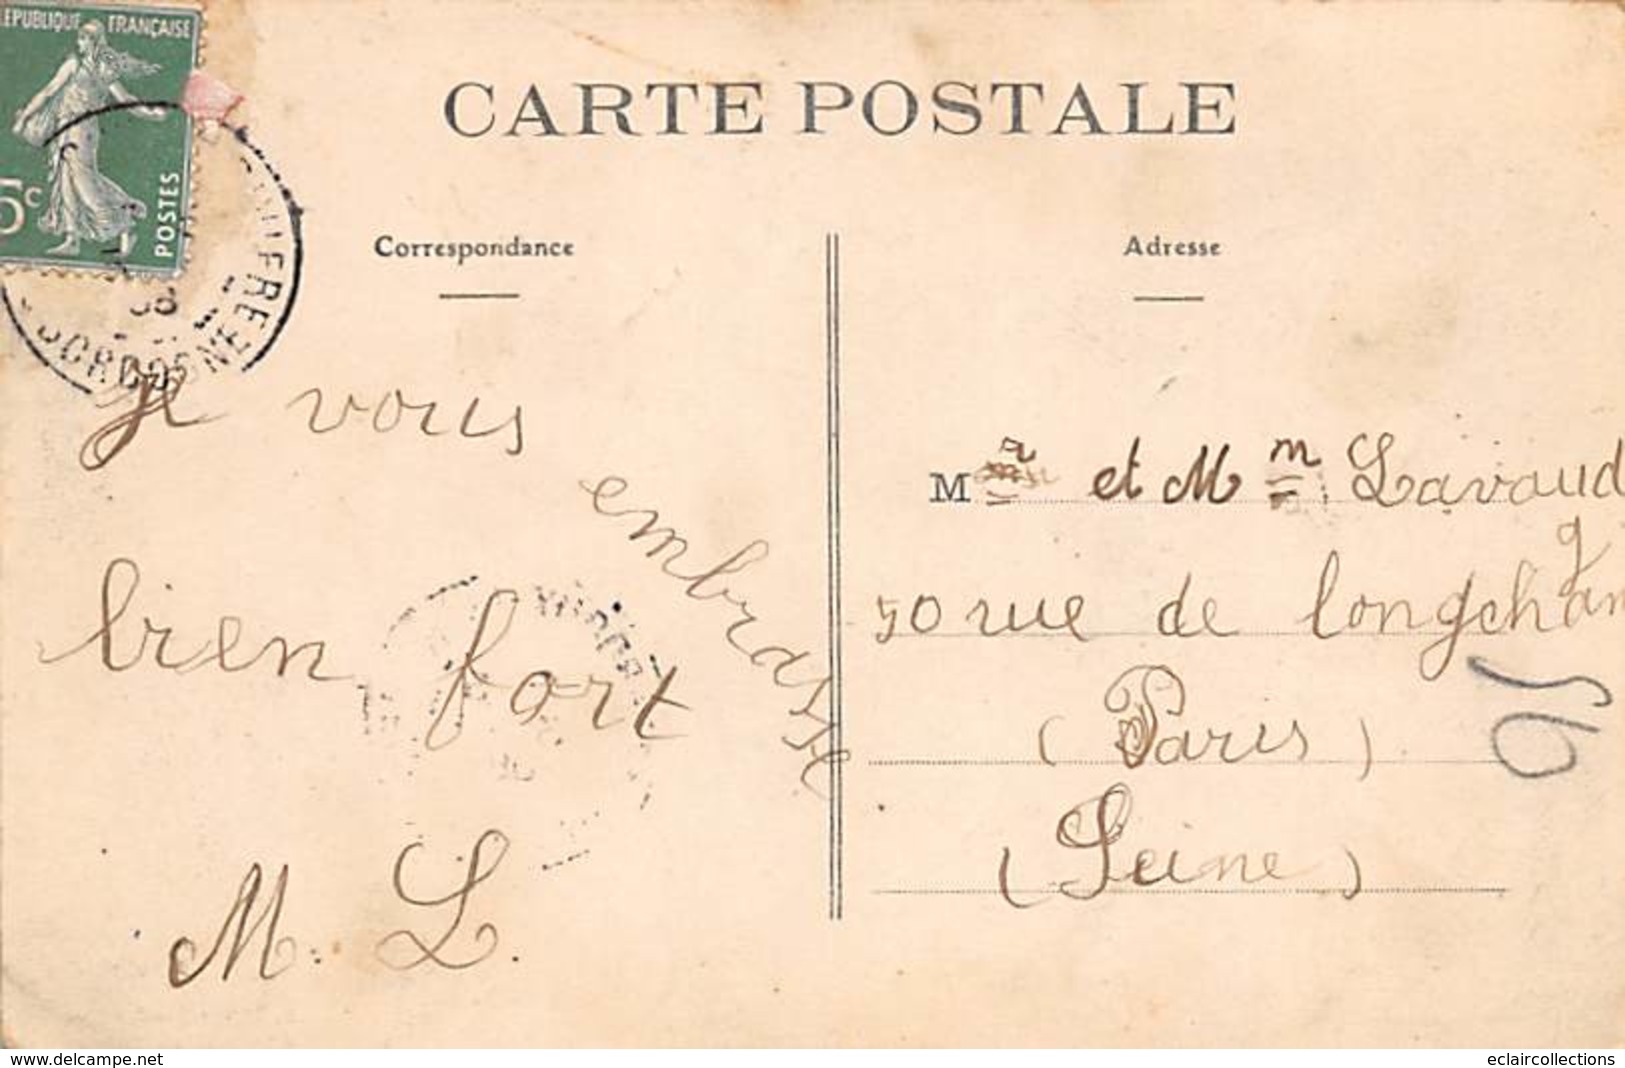 REPUBLIQUE FRANÇAISE
5c POSTES
DORDOGNE
CARTE POSTALE
Correspondance
Je vous
embrasse
bien fort
M. L.
Adresse
Mr et Mm Lavaud
50 rue de longchamp
(Paris)
(Seine)
16
www.delcampe.net
eclaircollections